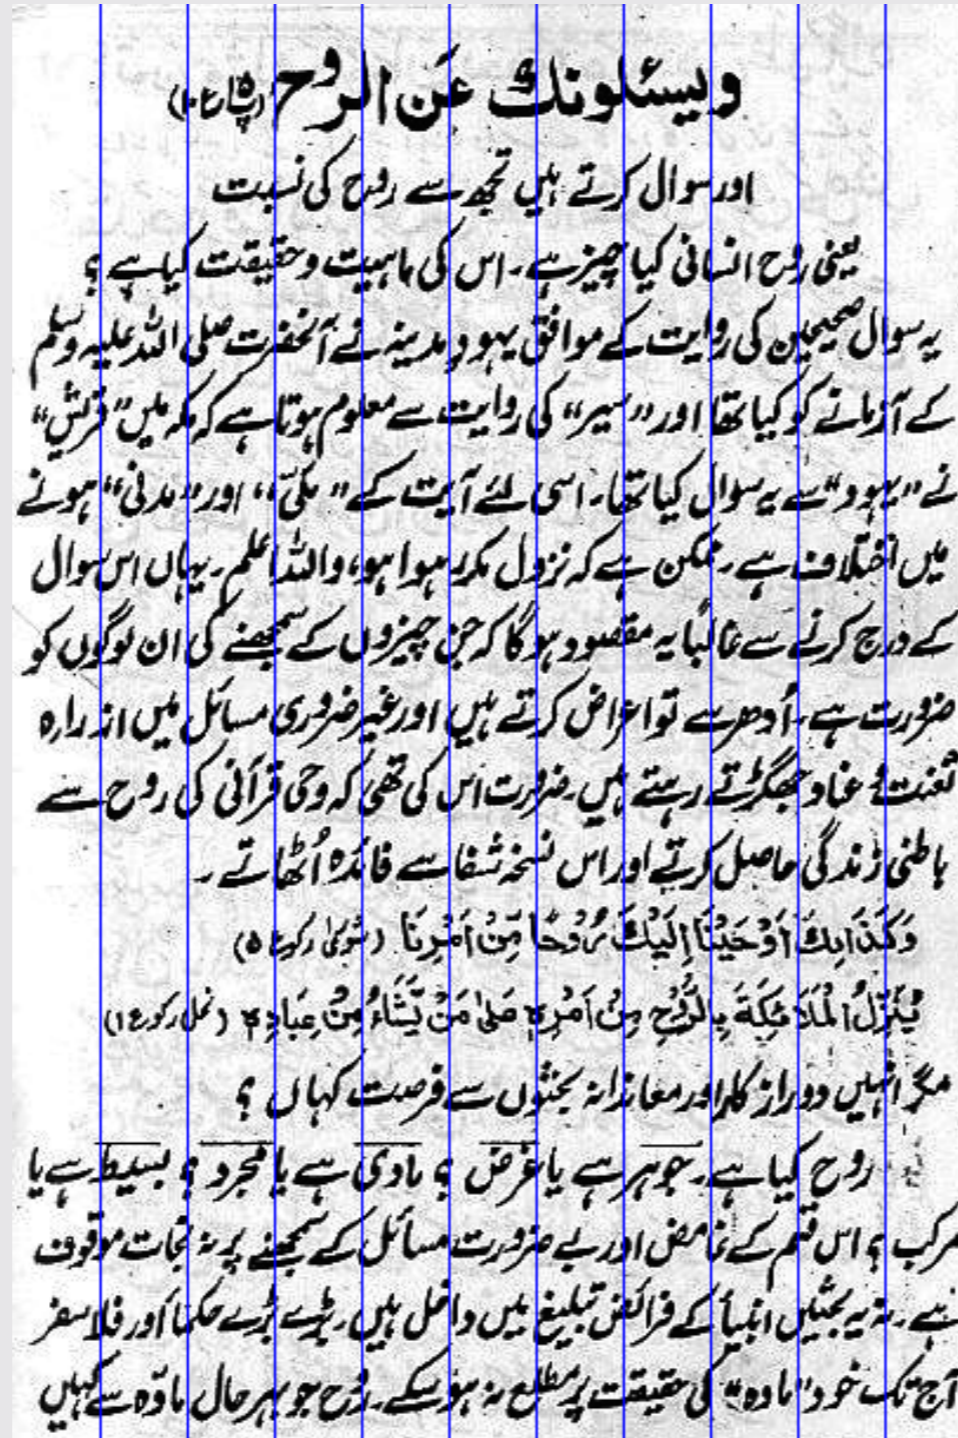 ویسئلونك عَن الروح (پ۱۵ ع ۱۰)
اور سوال کرتے ہیں تجھ سے روح کی نسبت
یعنی روح انسانی کیا چیز ہے۔ اس کی ماہیت و حقیقت کیا ہے؟
یہ سوال صحیحین کی روایت کے موافق یہود مدینہ نے آنحضرت صلی اللہ علیہ وسلم
کے آزمانے کو کیا تھا اور "سیر" کی روایت سے معلوم ہوتا ہے کہ مکہ میں "قریش"
نے "یہود" سے یہ سوال کیا تھا۔ اسی لئے آیت کے "مکیّ" اور "مدنی" ہونے
میں اختلاف ہے۔ ممکن ہے کہ نزول مکرر ہوا ہو، واللہ اعلم۔ یہاں اس سوال
کے درج کرنے سے غالباً یہ مقصود ہوگا کہ جن چیزوں کے سمجھنے کی ان لوگوں کو
ضرورت ہے۔ اُدھر سے تو اعراض کرتے ہیں اور غیر ضروری مسائل میں از راہ
تعنت و عناد جھگڑتے رہتے ہیں۔ ضرورت اس کی تھی کہ وحی قرآنی کی روح سے
باطنی زندگی حاصل کرتے اور اس نسخہ شفا سے فائدہ اُٹھاتے۔
وَكَذَالِكَ اَوْحَيْنَا اِلَيْكَ رُوْحًا مِّنْ اَمْرِنَا (شوریٰ رکوع ۵)
يُنَزِّلُ الْمَلَائِكَةَ بِالرُّوْحِ مِنْ اَمْرِهٖ عَلیٰ مَنْ يَّشَاءُ مِنْ عِبَادِهٖ (نحل رکوع ۱)
مگر انہیں دوراز کار اور معاندانہ بحثوں سے فرصت کہاں؟
روح کیا ہے۔ جوہر ہے یا عَرض؟ مادی ہے یا مجرد؟ بسیط ہے یا
مرکب؟ اس قسم کے غامض اور بے ضرورت مسائل کے سمجھنے پر نہ نجات موقوف
ہے۔ نہ یہ بحثیں انبیأ کے فرائض تبلیغ میں داخل ہیں۔ بڑے بڑے حکمأ اور فلاسفر
آج تک خود "مادہ" کی حقیقت پر مطلع نہ ہو سکے۔ روح جو بہر حال مادّہ سے کہیں